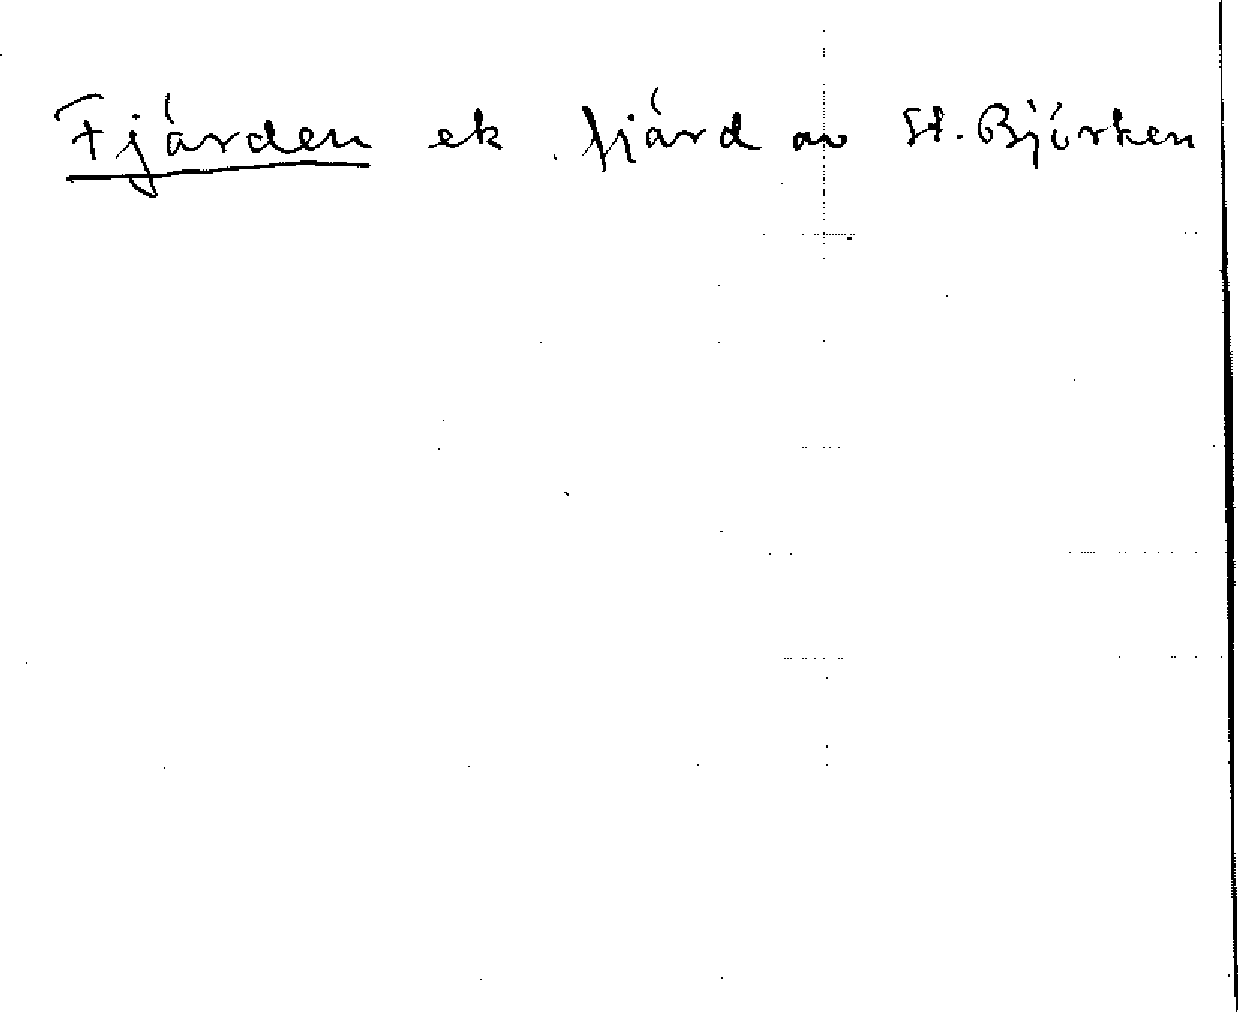 Fjärden ek fjärd av St. Björken